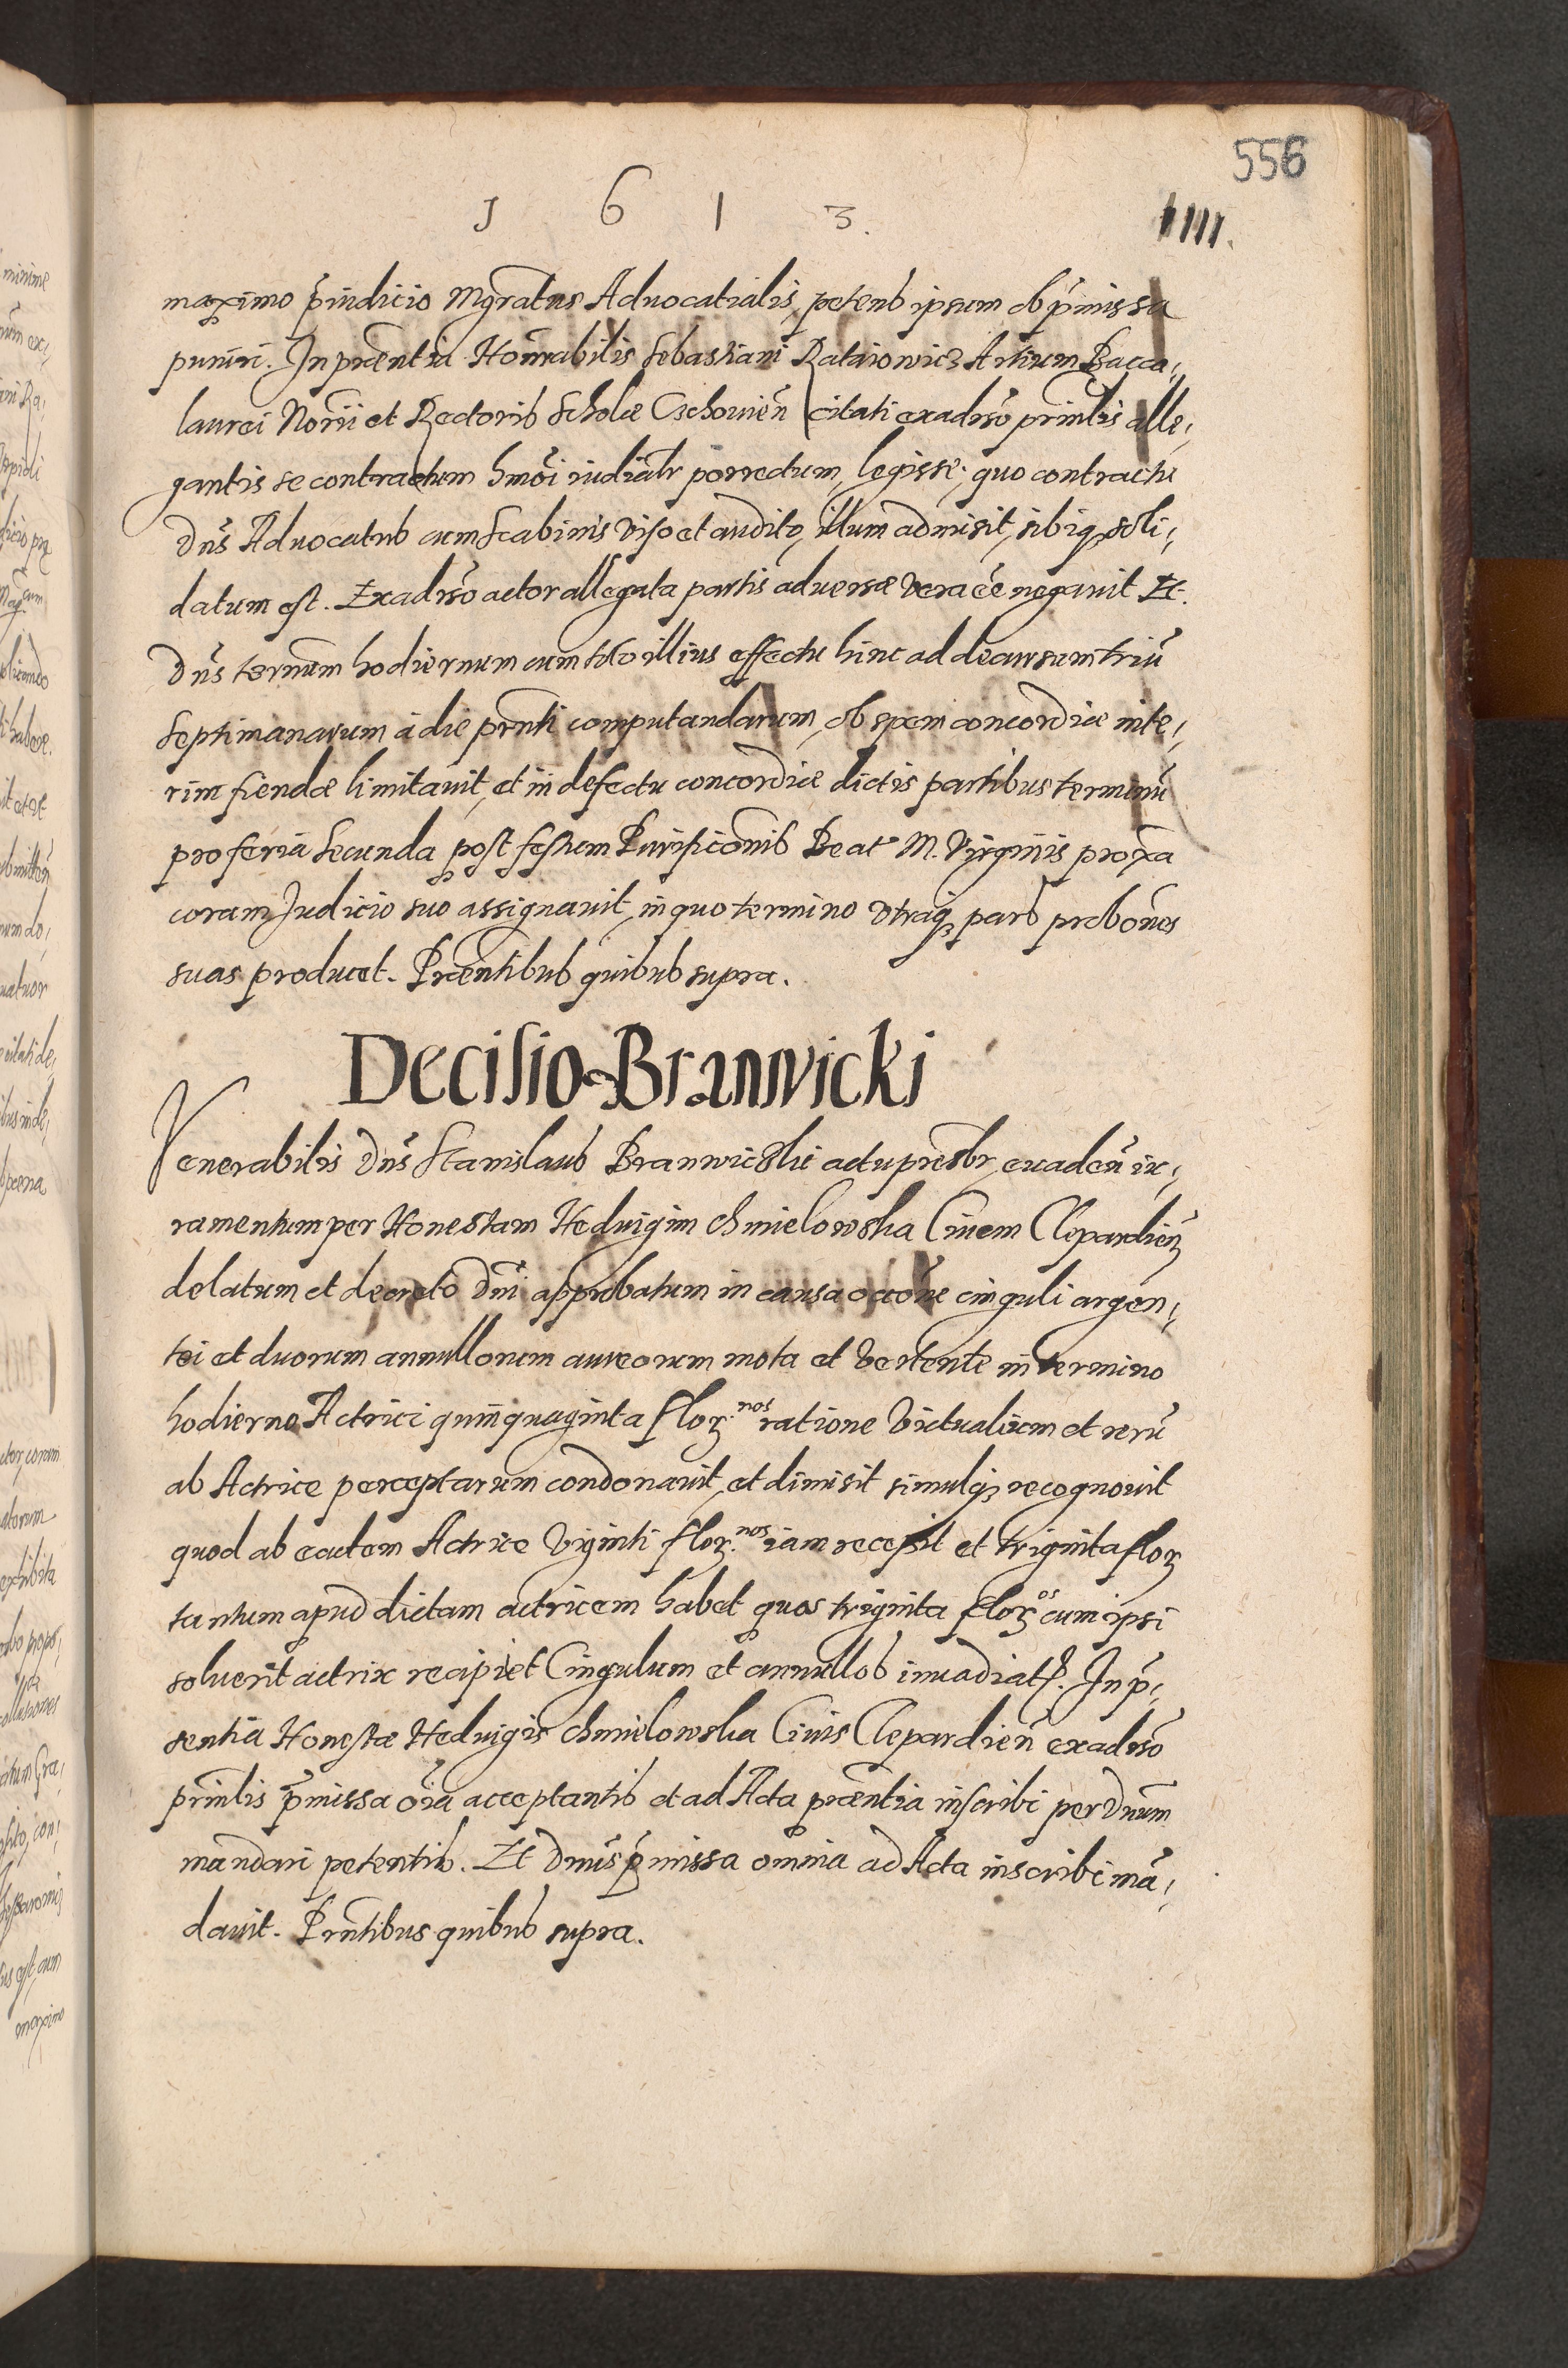 556
1 6 1 3.
IIII.
maximo p̃iudicio Mgratus Aduocatialis, petens ipsum ob p̃missa
puniri. In præntia Honorabilis Sebastiani Rataiowicz Artium Bacca,
laurei Norii et Rectoris Scholæ Czchowień citati exadrso prñcilis alle,
gantis se contractum hmõi iudialr porrectum, legisse; quo contractu
Dns̃ Aduocatus cum scabinis viso et audito, illum admisit, sibiq soli,
datum est. Exadrso actor allegata partis aduersæ vera eẽ negauit Et
Dns̃ ternum hodiernum cum toto illius effectu hinc ad decursum triũ
septimanarum à die prñti computandarum, ob spem concordiæ inte,
rim fiendæ limitauit, et in defectu concordiæ dictis partibus terminũ
pro feria secunda post festum Purificõnis Beat M. Virginis proxa
coram Iudicio suo assignauit, in quo termino vtraq pars probõnes
suas producet. Præntibus quibus supra.
Decisio Branwicki
Venerabilis Dns̃ Stanislaus Branwiczki actu presbr, euadeñ iu,
ramentum per Honestam Heduigim Chmielowska Ciuem Clepardień
delatum et decreto Dñi approbatum in causa occõne cinguli argen,
tei et duorum annullorum aureorum mota et vertente in termino
hodierno Actrici quinquaginta flor.nos ratione victualium et rerũ
ab Actrice perceptarum condonauit, et dimisit simulq recognouit
quod ab eadem Actrice viginti flor.nos iam recepit et triginta flor
tantum apud dictam actricem habet quos triginta flor.os cum ipsi
soluerit actrix recipiet Cingulum et annullos inuadiat. In p̃,
sentia Honestæ Heduigis Chmielowska Ciuis Clepardień exadrso
prñcilis p̃missa oĩa acceptantis et ad Acta præntia inscribi per Dnũm
mandari petentis. Et Dnũs p̃missa omnia ad Acta inscribi mã,
dauit. Prñtibus quibus supra.